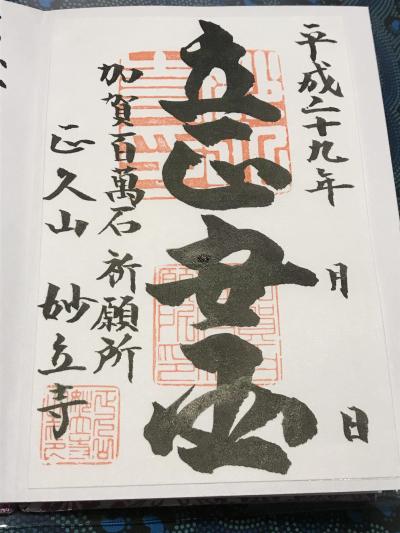 平成二十九年 月 日
立正安国
加賀百萬石祈願所
正久山 妙立寺